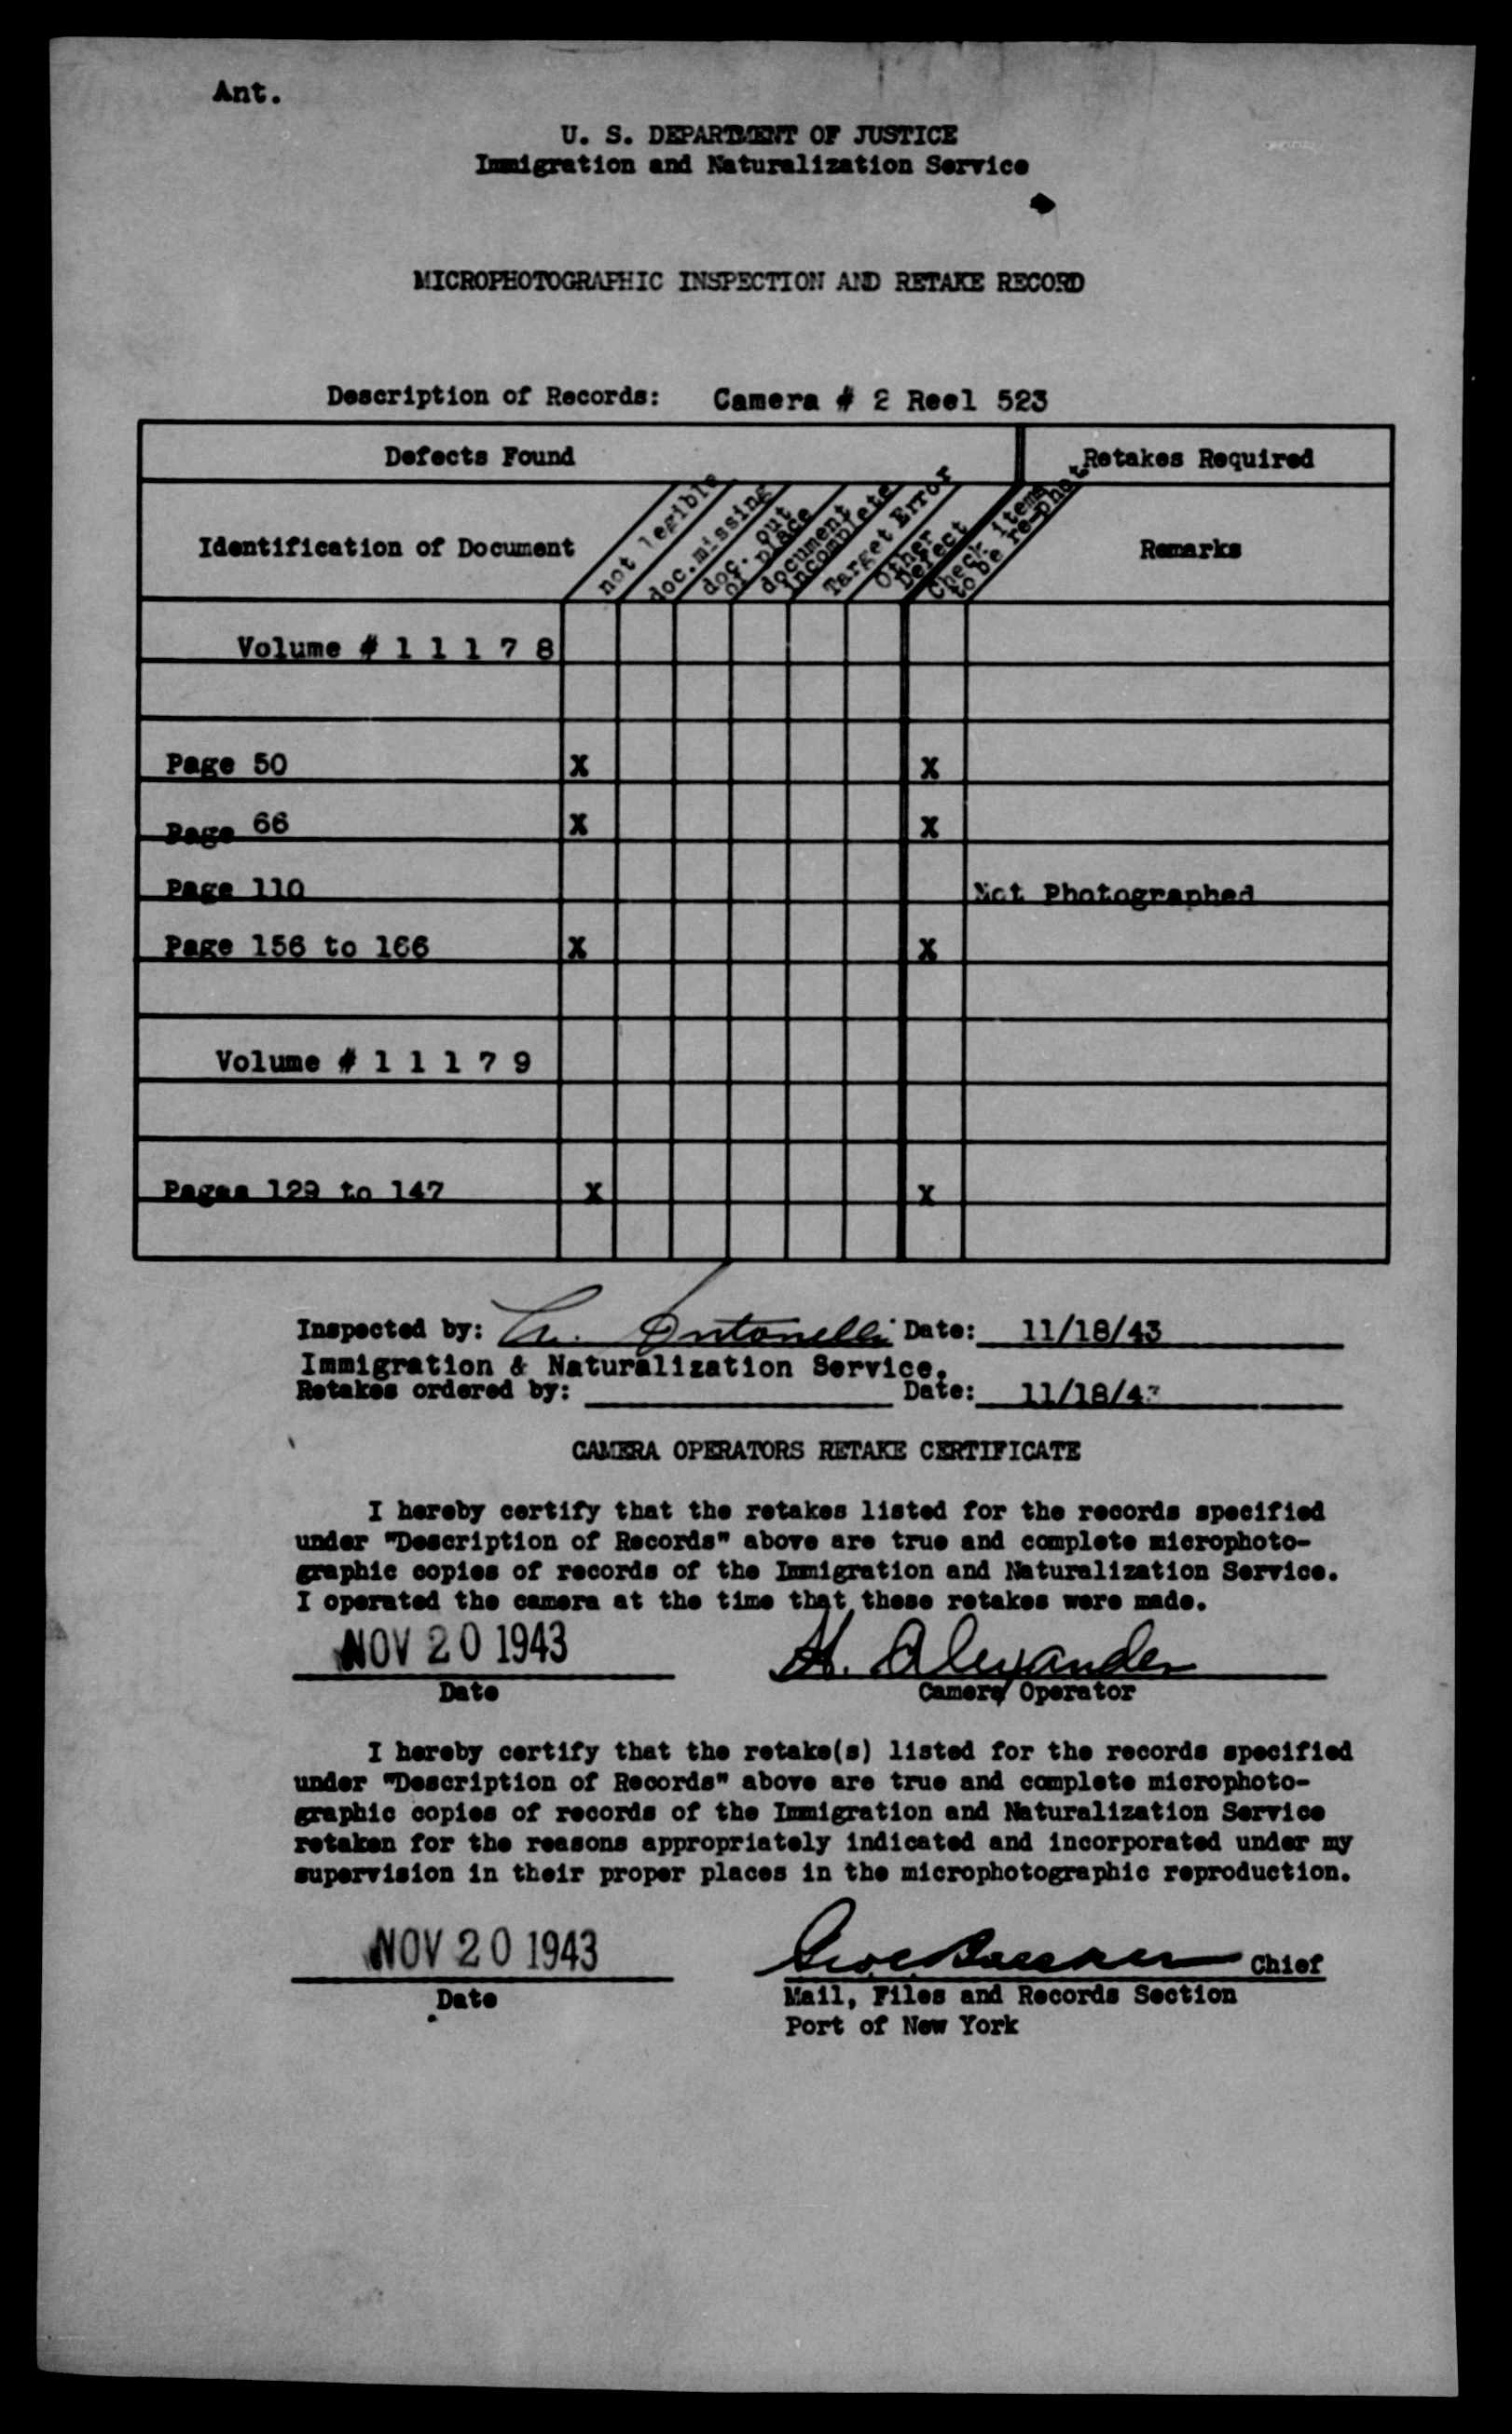 Ant.
U. S. DEPARTMENT OF JUSTICE
Immigration and Naturalization Service
MICROPHOTOGRAPHIC INSPECTION AND RETAKE RECORD
Description of Records: Camera # 2 Reel 523
Defects Found
Retakes Required
Identification of Document
not legible
doc. missing
doc. out
of place
document
incomplete
Target Error
Other
Defect
Check items
to be re-phot.
Remarks
Volume # 1 1 1 7 8
Page 50 X X
Page 66 X X
Page 110 Not Photographed
Page 156 to 166 X X
Volume # 1 1 1 7 9
Pages 129 to 147 X X
Inspected by: Antonelli Date: 11/18/43
Immigration & Naturalization Service.
Retakes ordered by: Date: 11/18/43
CAMERA OPERATORS RETAKE CERTIFICATE
I hereby certify that the retakes listed for the records specified
under "Description of Records" above are true and complete microphoto-
graphic copies of records of the Immigration and Naturalization Service.
I operated the camera at the time that these retakes were made.
NOV 20 1943 H. Alexander
Date Camera Operator
I hereby certify that the retake(s) listed for the records specified
under "Description of Records" above are true and complete microphoto-
graphic copies of records of the Immigration and Naturalization Service
retaken for the reasons appropriately indicated and incorporated under my
supervision in their proper places in the microphotographic reproduction.
NOV 20 1943 Chief
Date Mail, Files and Records Section
Port of New York